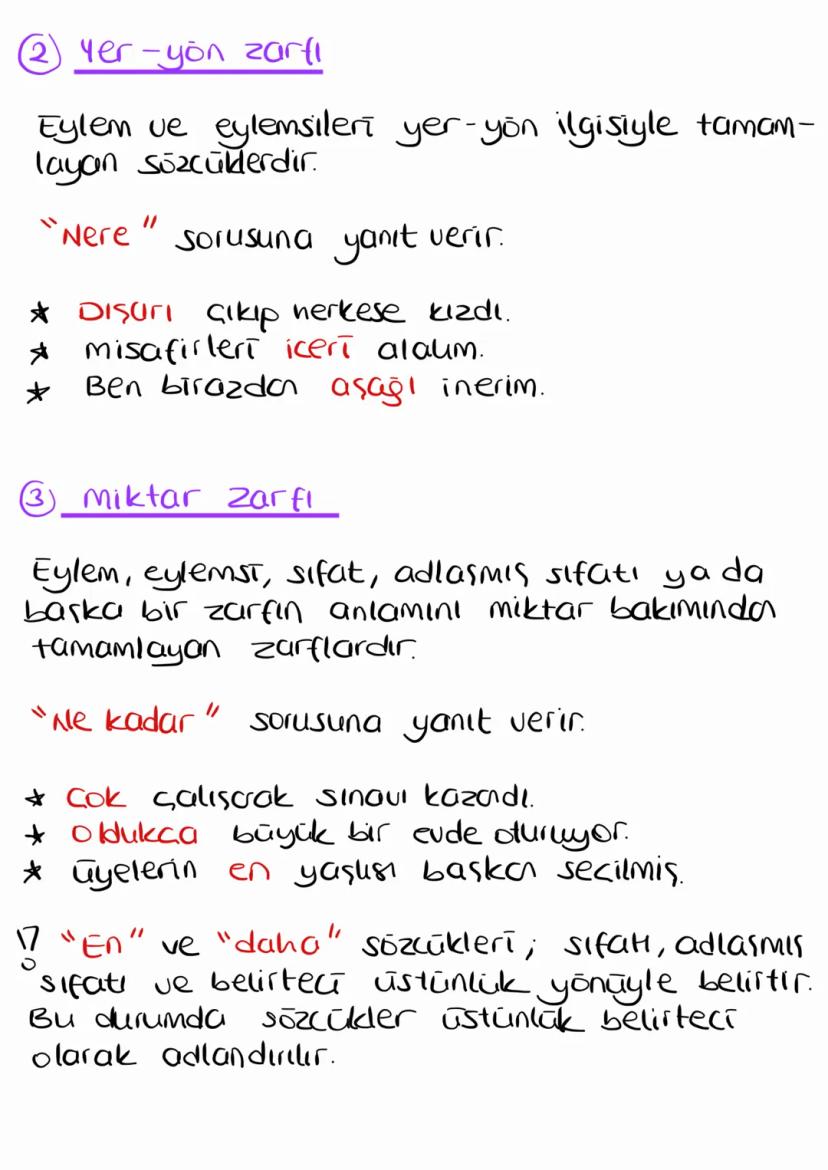 ② Yer-yön zarfı
Eylem ve eylemsileri yer-yön ilgisiyle tamam-
layan sözcüklerdir.
"Nere" sorusuna yanıt verir.
★ Dışarı çıkıp herkese kızdı.
★ misafirleri içeri alalım.
★ Ben birazdan aşağı inerim.
③ Miktar Zarfı
Eylem, eylemsi, sıfat, adlaşmış sıfatı ya da
başka bir zarfın anlamını miktar bakımından
tamamlayan zarflardır.
"Ne kadar" sorusuna yanıt verir.
★ Çok çalışarak sınavı kazandı.
★ Oldukça büyük bir evde oturuyor.
★ üyelerin en yaşlısı başkan seçilmiş.
! "En" ve "daha" sözcükleri; sıfatı, adlaşmış
sıfatı ve belirteci üstünlük yönüyle belirtir.
Bu durumda sözcükler üstünlük belirteci
olarak adlandırılır.